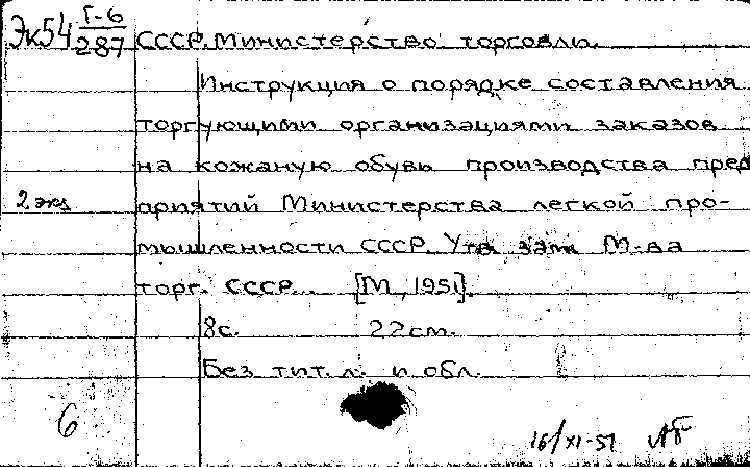 Эк54 Г-6/287 СССР. Министерство торговли.
Инструкция о порядке составления
торгующими организациями заказов
на кожаную обувь производства пред
2 экз приятий Министерства легкой про-
мышленности СССР. Утв. зам. М-ва
торг. СССР. [М., 1951].
8с. 22см.
Без тит. л. и обл.
6
16/XI-51